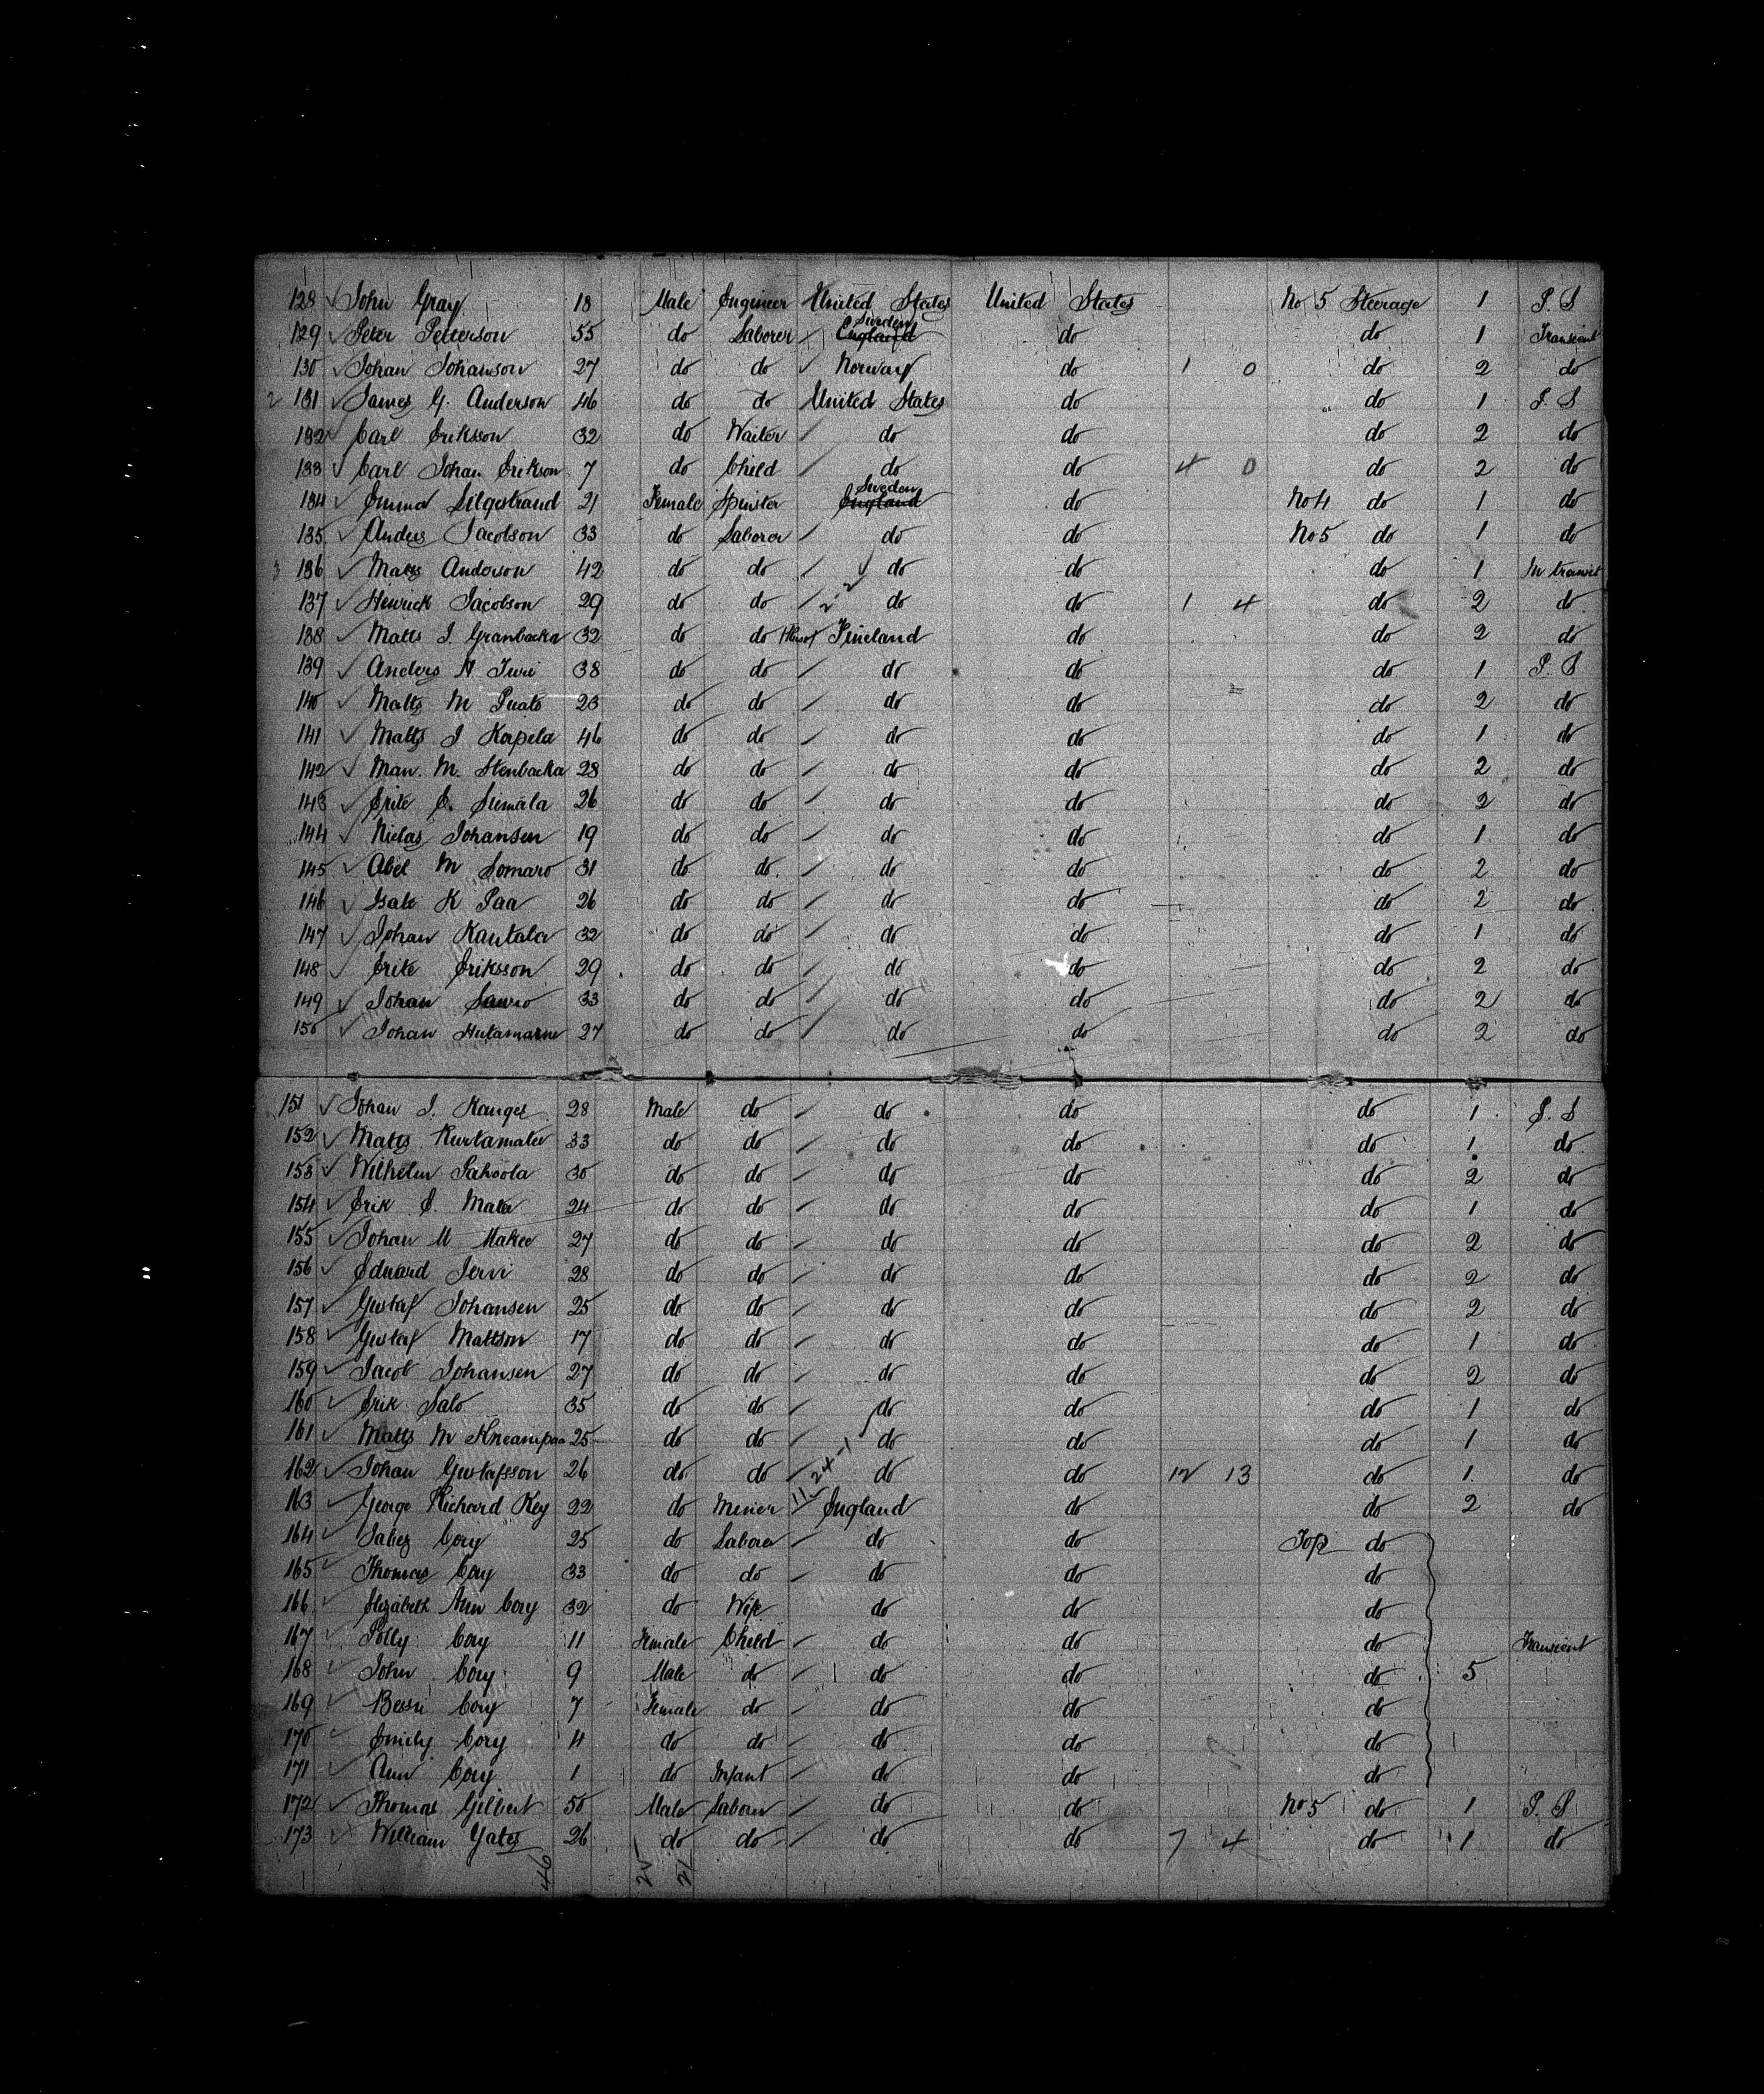 128 John Gray 18 Male Engineer United States United States No 5 Steerage 1 P. S
129 Peter Petterson 55 do Laborer Sweden England do do 1 Transient
130 Johan Johanson 27 do do Norway do 1 0 do 2 do
2 131 James G. Anderson 46 do do United States do do 1 P. S
132 Carl Eriksson 32 do Waiter do do do 2 do
133 Carl Johan Erikson 7 do Child do do 4 0 do 2 do
134 Emma 21 Female Spinster Sweden England do No 4 do 1 do
135 Anders Jacobson 33 do Laborer do do No 5 do 1 do
3 136 Matts Anderson 42 do do do do do 1 In transit
137 Henrick Jacobson 29 do do 2 2 do do 1 4 do 2 do
138 Matts J. Granbacka 32 do do Fineland do do 2 do
139 Anders A 38 do do do do do 1 P. S
140 Matts M 23 do do do do do 2 do
141 Matts J Kapela 46 do do do do do 1 do
142 Man. M. Stenbacka 28 do do do do do 2 do
143 Erik E. Sumala 26 do do do do do 2 do
144 Nielas Johansen 19 do do do do do 1 do
145 Abel M Somaro 31 do do do do do 2 do
146 Isak K Paa 26 do do do do do 2 do
147 Johan Kantala 32 do do do do do 1 do
148 Erik Eriksson 29 do do do do do 2 do
149 Johan 33 do do do do do 2 do
150 Johan 27 do do do do do 2 do
151 Johan J. Kanges 28 Male do do do do 1 P. S
152 Matts 33 do do do do do 1 do
153 Wilhelm 30 do do do do do 2 do
154 Erik E. Mata 24 do do do do do 1 do
155 Johan M 27 do do do do do 2 do
156 Eduard Jervi 28 do do do do do 2 do
157 Gustaf Johansen 25 do do do do do 2 do
158 Gustaf Mattson 17 do do do do do 1 do
159 Jacob Johansen 27 do do do do do 2 do
160 Erik Salo 35 do do do do do 1 do
161 Matts M 25 do do do do do 1 do
162 Johan Gustafsson 26 do do 24-1 do do 12 13 do 1 do
163 George Richard Key 22 do Miner 11 England do do 2 do
164 Jabez Cory 25 do Laborer do do Top do
165 Thomas Cory 33 do do do do do
166 Elizabeth Ann Cory 32 do Wife do do do
167 Polly Cory 11 Female Child do do do Transient
168 John Cory 9 Male do do do do 5
169 Bessie Cory 7 Female do do do do
170 Emily Cory 4 do do do do do
171 Ann Cory 1 do Infant do do do
172 Thomas Gilbert 50 Male Laborer do do No 5 do 1 P. S
173 William Yates 26 do do do do 7 4 do 1 do
46 25 21